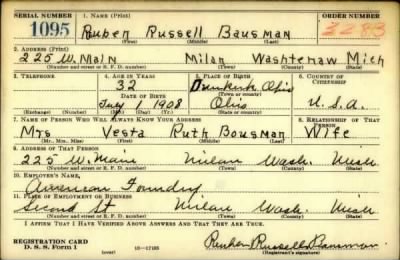 SERIAL NUMBER 1. NAME (Print) ORDER NUMBER
1095 Ruben Russell Bausman 3283
(First) (Middle) (Last)
2. ADDRESS (Print)
225 W. Main Milan Washtenaw Mich
(Number and street or R. F. D. number) (Town) (County) (State)
3. TELEPHONE 4. AGE IN YEARS 5. PLACE OF BIRTH 6. COUNTRY OF CITIZENSHIP
32 Dunkirk Ohio
DATE OF BIRTH (Town or county)
July 1 1908 Ohio U.S.A.
(Exchange) (Number) (Mo.) (Day) (Yr.) (State or country)
7. NAME OF PERSON WHO WILL ALWAYS KNOW YOUR ADDRESS 8. RELATIONSHIP OF THAT PERSON
Mrs Vesta Ruth Bousman Wife
(Mr., Mrs., Miss) (First) (Middle) (Last)
9. ADDRESS OF THAT PERSON
225 W. Main Milan Wash. Mich
(Number and street or R. F. D. number) (Town) (County) (State)
10. EMPLOYER'S NAME
American Foundry
11. PLACE OF EMPLOYMENT OR BUSINESS
Second St Milan Wash. Mich
(Number and street or R. F. D. number) (Town) (County) (State)
I AFFIRM THAT I HAVE VERIFIED ABOVE ANSWERS AND THAT THEY ARE TRUE.
REGISTRATION CARD
D. S. S. Form 1 (over) Reuben Russell Bausman
(Registrant's signature)